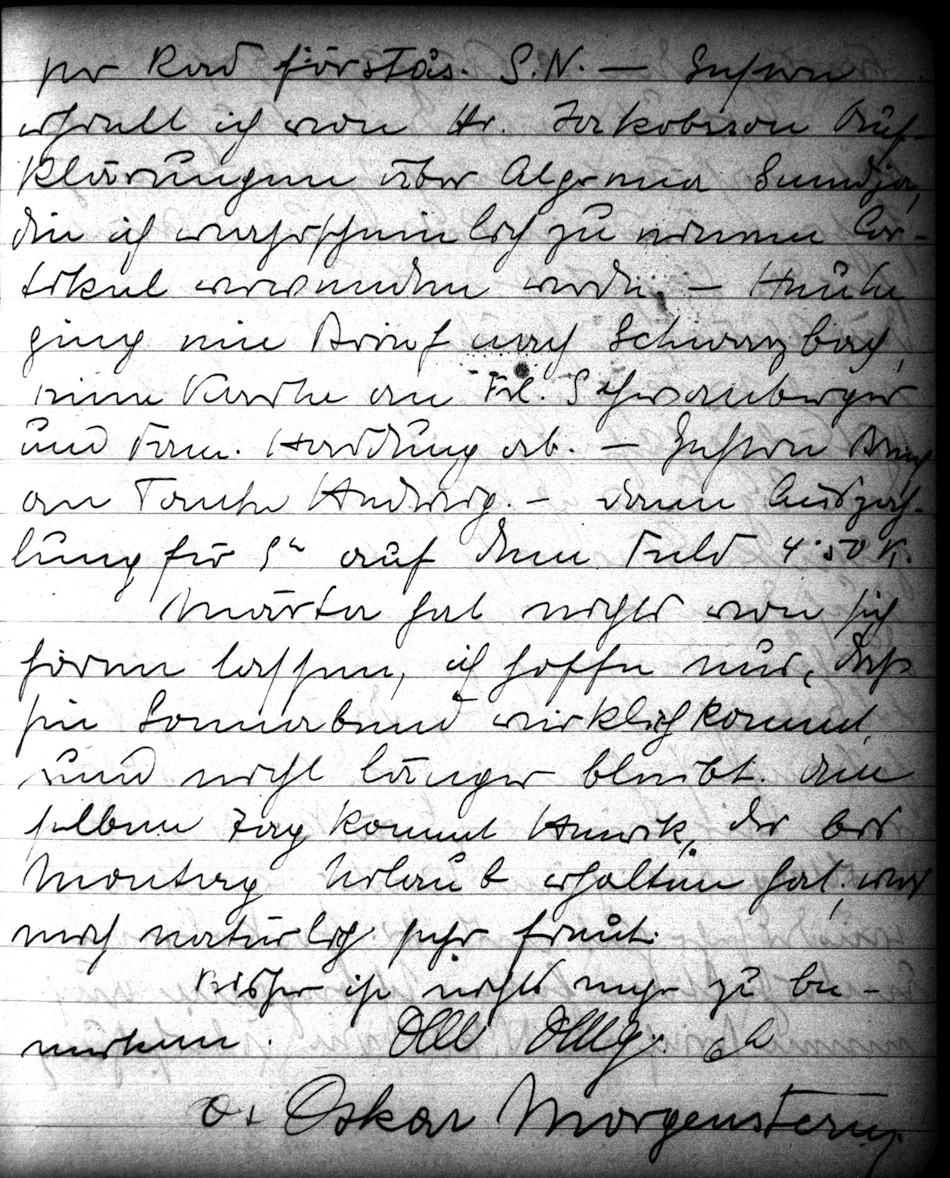 per Rad förstås. S.N. — Gestern
erhielt ich von Hr. Jakobsson Auf-
klärungen über Algermia Svendja,
die ich wahrscheinlich zu einem Ar-
tikel verwenden werde. — Heute
ging ein Brief nach Schwarzbach,
eine Karte an Frl. Schwanberger
und Fam. Hardung ab. — Gestern Brief
an Tante Hedwig. — dann Auszah-
lung für auf dem Feld 4·50 K.
Märta hat nichts von sich
hören lassen, ich hoffe nur, daß
sie Sonnabend wirklich kommt
und nicht länger bleibt. Am
selben Tag kommt Henrik, der bis
Montag Urlaub erhalten hat, was
mich natürlich sehr freut.
Bisher ist nichts mehr zu be-
merken.
Oskar Morgenstern